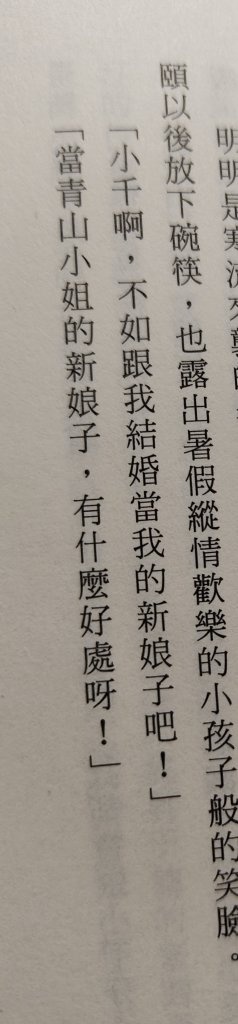 明明是寒流來襲的
頤以後放下碗筷，也露出暑假縱情歡樂的小孩子般的笑臉。
「小千啊，不如跟我結婚當我的新娘子吧！」
「當青山小姐的新娘子，有什麼好處呀！」